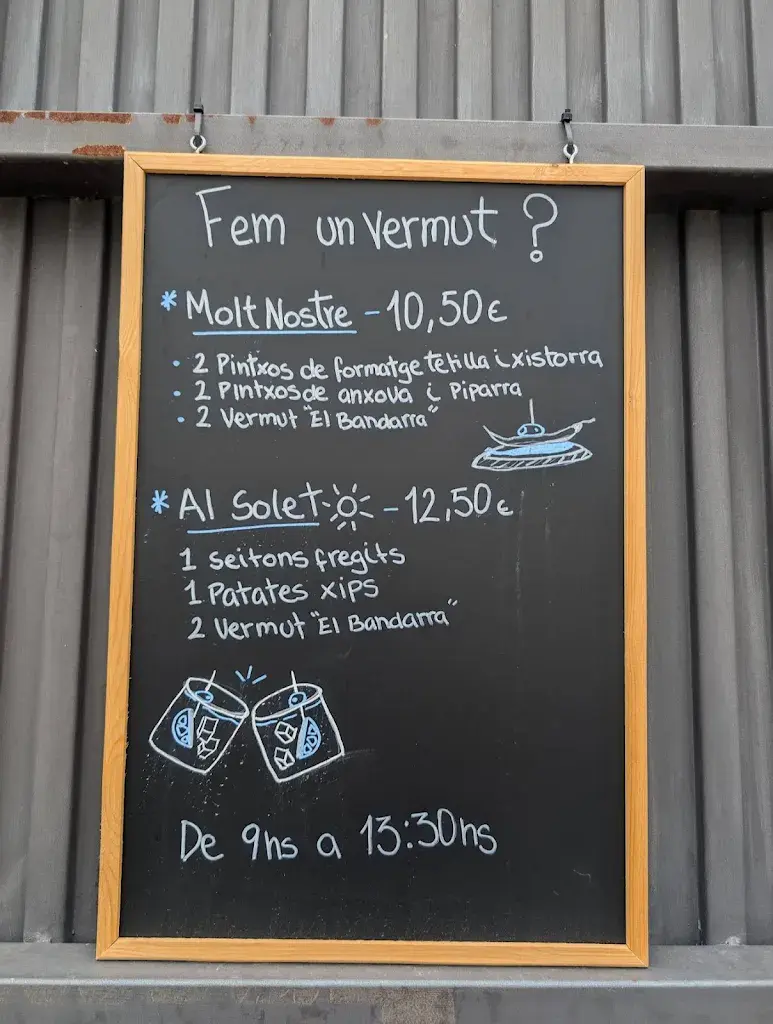 Fem un vermut ?
* Molt Nostre - 10,50€
• 2 Pintxos de formatge tetilla i xistorra
• 2 Pintxos de anxova i Piparra
• 2 Vermut "El Bandarra"
* Al Solet - 12,50€
1 seitons fregits
1 Patates xips
2 Vermut "El Bandarra"
De 9hs a 13:30hs